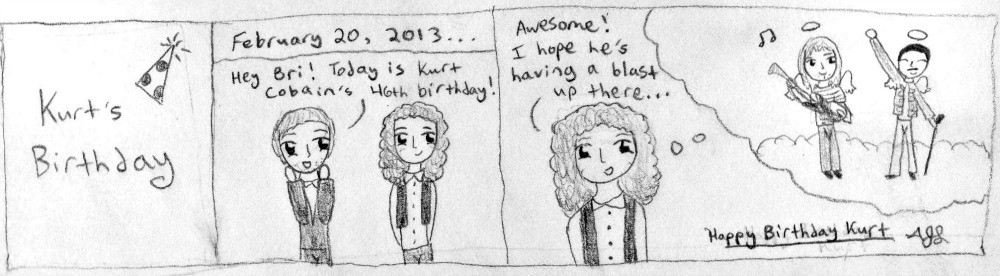 Kurt's
Birthday
February 20, 2013...
Hey Bri! Today is Kurt
Cobain's 46th birthday!
Awesome!
I hope he's
having a blast
up there...
Happy Birthday Kurt